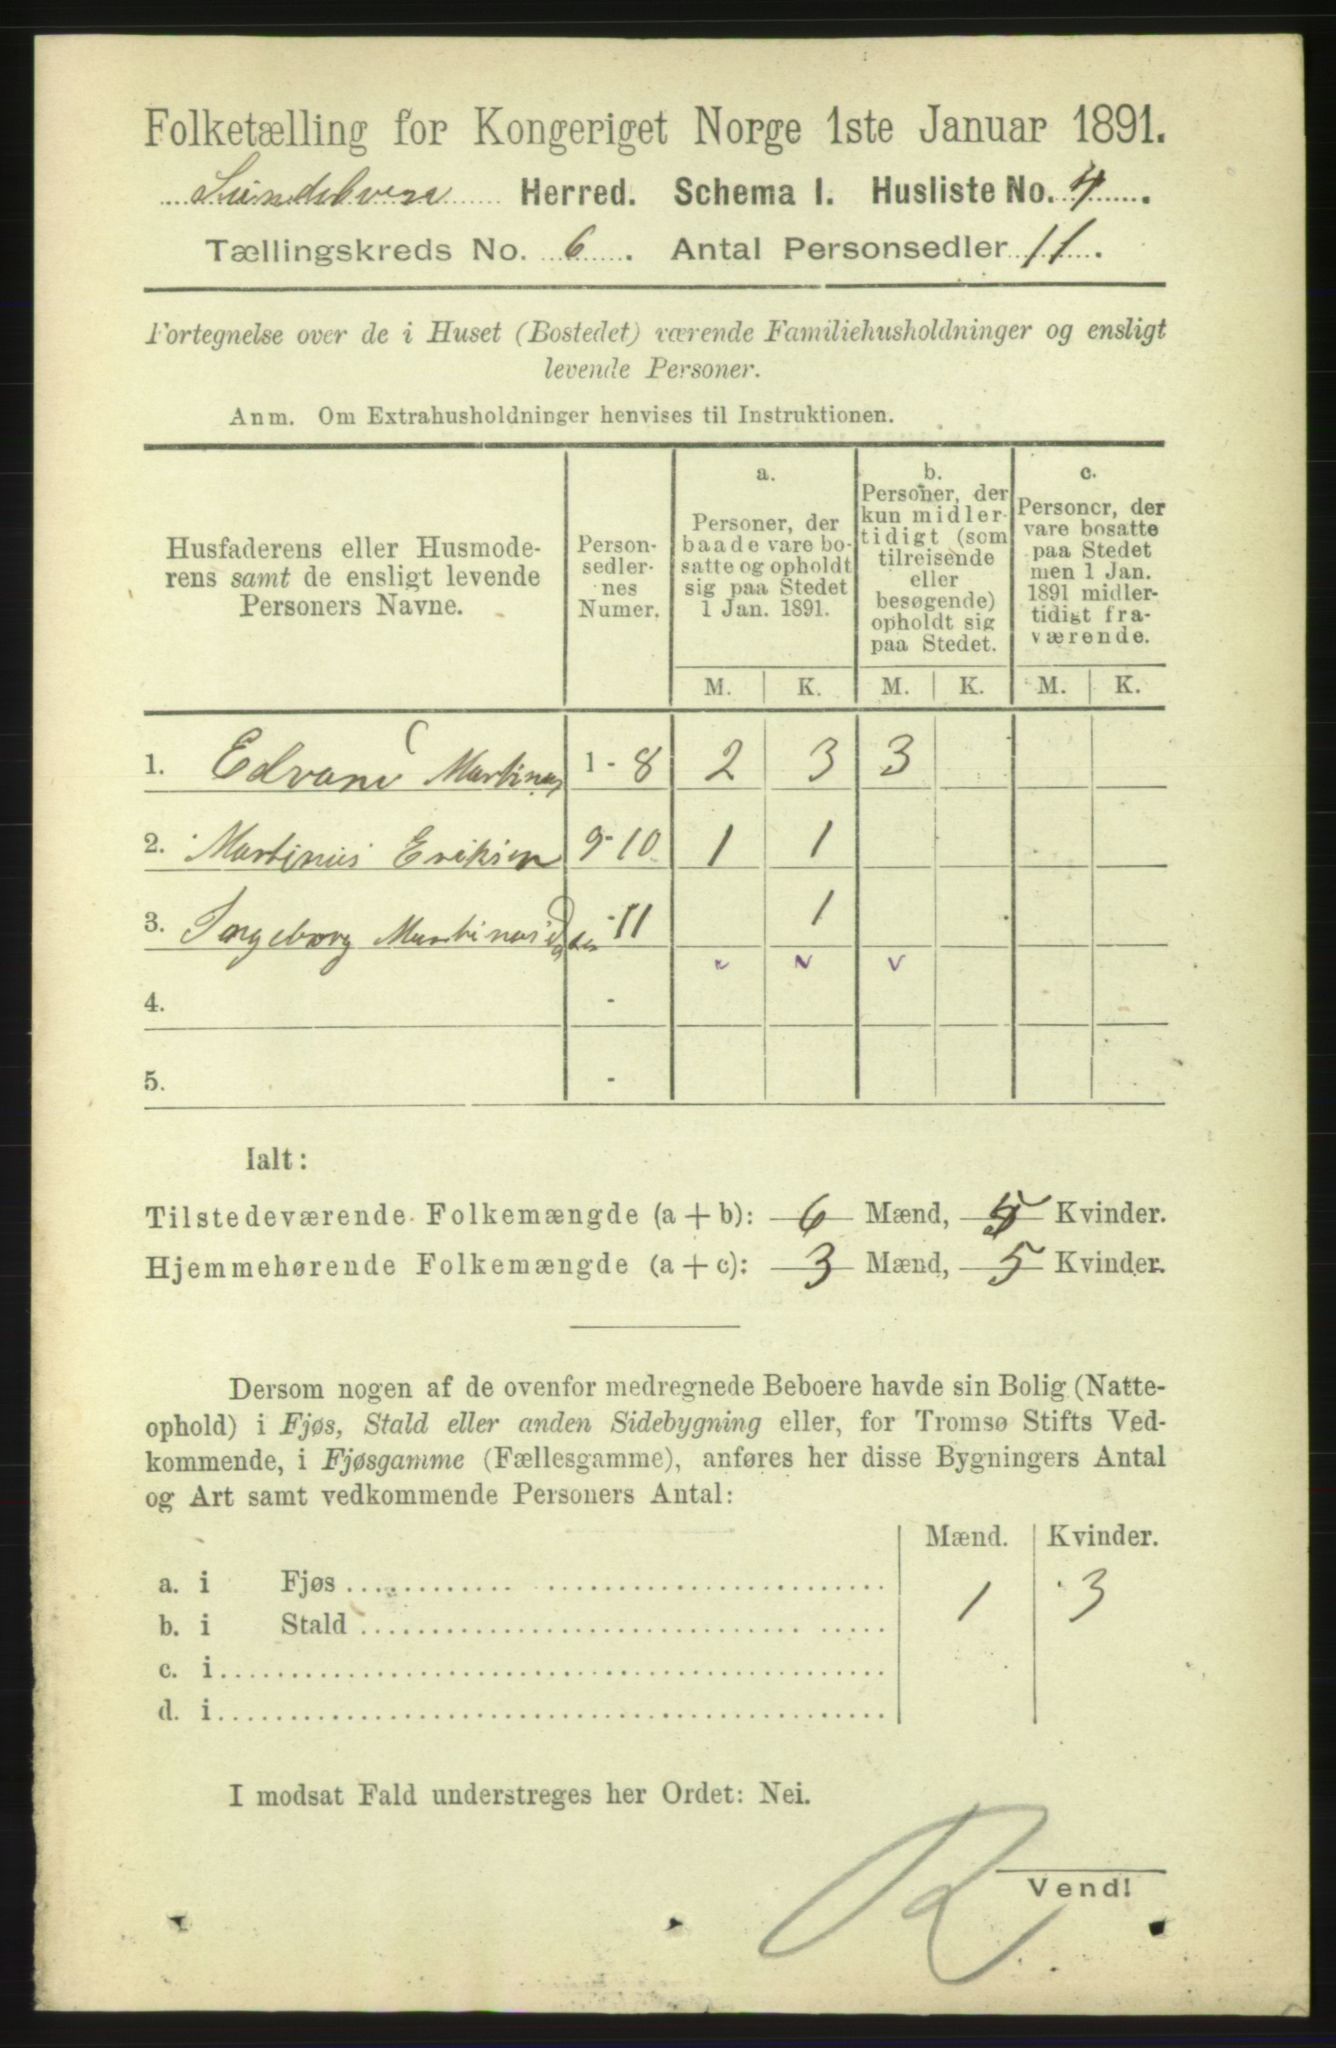 Folketælling for Kongeriget Norge 1ste Januar 1891.
Herred. Schema I. Husliste No. 4.
Tællingskreds No. 6. Antal Personsedler 11.
Fortegnelse over de i Huset (Bostedet) værende Familiehusholdninger og ensligt
levende Personer.
Anm. Om Extrahusholdninger henvises til Instruktionen.
Husfaderens eller Husmode-
rens samt de ensligt levende
Personers Navne.
Person-
sedler-
nes
Numer.
a.
Personer, der
baade vare bo-
satte og opholdt
sig paa Stedet
1 Jan. 1891.
b.
Personer, der
kun midler-
tidigt (som
tilreisende
eller
besøgende)
opholdt sig
paa Stedet.
c.
Personer, der
vare bosatte
paa Stedet
men 1 Jan.
1891 midler-
tidigt fra-
værende.
M. K. M. K. M. K.
1. Edvard 1 - 8 2 3 3
2. Martinus Eriksen 9-10 1 1
3. Ingeborg -11 1
4. -
5. -
Ialt:
Tilstedeværende Folkemængde (a + b): 6 Mænd, 5 Kvinder.
Hjemmehørende Folkemængde (a + c): 3 Mænd, 5 Kvinder.
Dersom nogen af de ovenfor medregnede Beboere havde sin Bolig (Natte-
ophold) i Fjøs, Stald eller anden Sidebygning eller, for Tromsø Stifts Ved-
kommende, i Fjøsgamme (Fællesgamme), anføres her disse Bygningers Antal
og Art samt vedkommende Personers Antal:
Mænd. Kvinder.
a. i Fjøs 1 3
b. i Stald
c. i
d. i
I modsat Fald understreges her Ordet: Nei.
R
Vend!